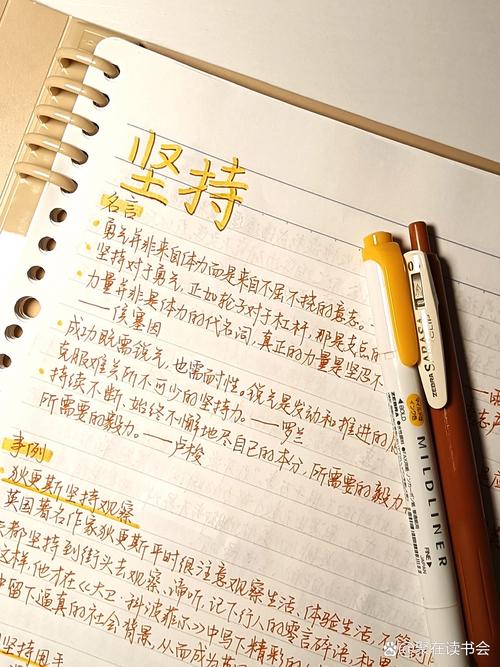 坚持
名言
·勇气并非来自体力而是来自不屈不挠的意志。
·坚持对于勇气,正如轮子对于杠杆,那是支点的
·力量并非是体力的代名词,真正的力量是坚忍不
——侯塞因
·成功既需锐气,也需耐性。锐气是发动和推进的
克服难关所不可少的坚持力。——罗兰
·持续不断、始终不懈地尽自己的本分,所需要的毅力
所需要的毅力。——卢梭
事例
·狄更斯坚持观察
英国著名作家狄更斯平时很注意观察生活、体验生活,不管
天都坚持到街头去观察、谛听,记下行人的零言碎语,积累
这样,他才在《大卫·科波菲尔》中写下精彩的
中留下逼真的社会背景,从而成为英
坚持用
MILDLINER
BOLD
FINE
JAPAN
ZEBRA
@聚在读书会